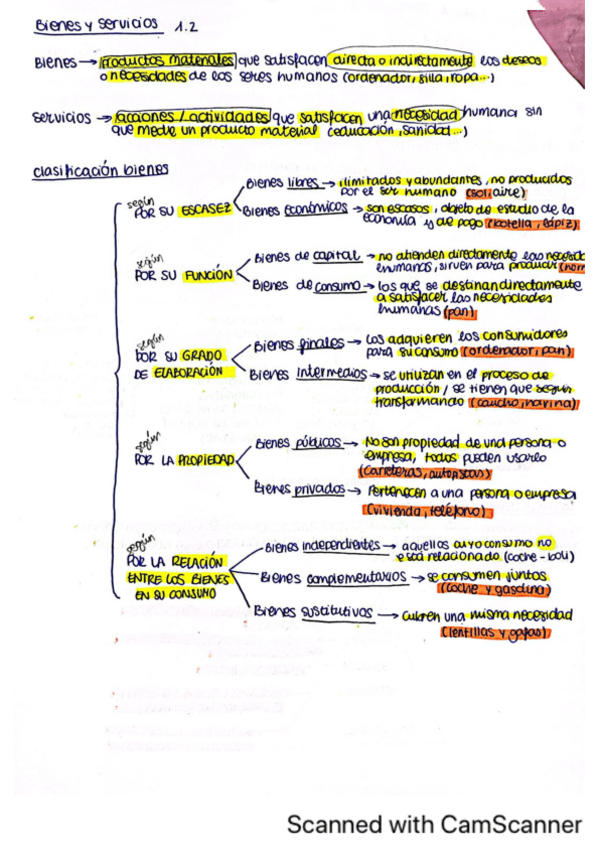 Bienes y servicios 1.2
Bienes → Productos materiales que satisfacen directa o indirectamente los deseos
o necesidades de los seres humanos (ordenador, silla, ropa...)
Servicios → acciones / actividades que satisfacen una necesidad humana sin
que medie un producto material (educación, sanidad...)
Clasificación bienes
según
POR SU ESCASEZ
Bienes libres → ilimitados y abundantes, no producidos
por el ser humano (sol, aire)
Bienes económicos → son escasos, objeto de estudio de la
economía y de pago (botella, lápiz)
según
POR SU FUNCIÓN
Bienes de capital → no atienden directamente las necesid
humanas, sirven para producir (horn
Bienes de consumo → los que se destinan directamente
a satisfacer las necesidades
humanas (pan)
según
POR SU GRADO
DE ELABORACIÓN
Bienes finales → Los adquieren los consumidores
para su consumo (ordenador, pan)
Bienes intermedios → se utilizan en el proceso de
producción / se tienen que seguir
transformando (caucho, harina)
según
POR LA PROPIEDAD
Bienes públicos → No son propiedad de una persona o
empresa, todos pueden usarlo
(carreteras, autopistas)
Bienes privados → Pertenecen a una persona o empresa
(vivienda, teléfono)
según
POR LA RELACIÓN
ENTRE LOS BIENES
EN SU CONSUMO
Bienes independientes → aquellos cuyo consumo no
está relacionado (coche - boli)
Bienes complementarios → se consumen juntos
(coche y gasolina)
Bienes sustitutivos → cubren una misma necesidad
(lentillas y gafas)
Scanned with CamScanner